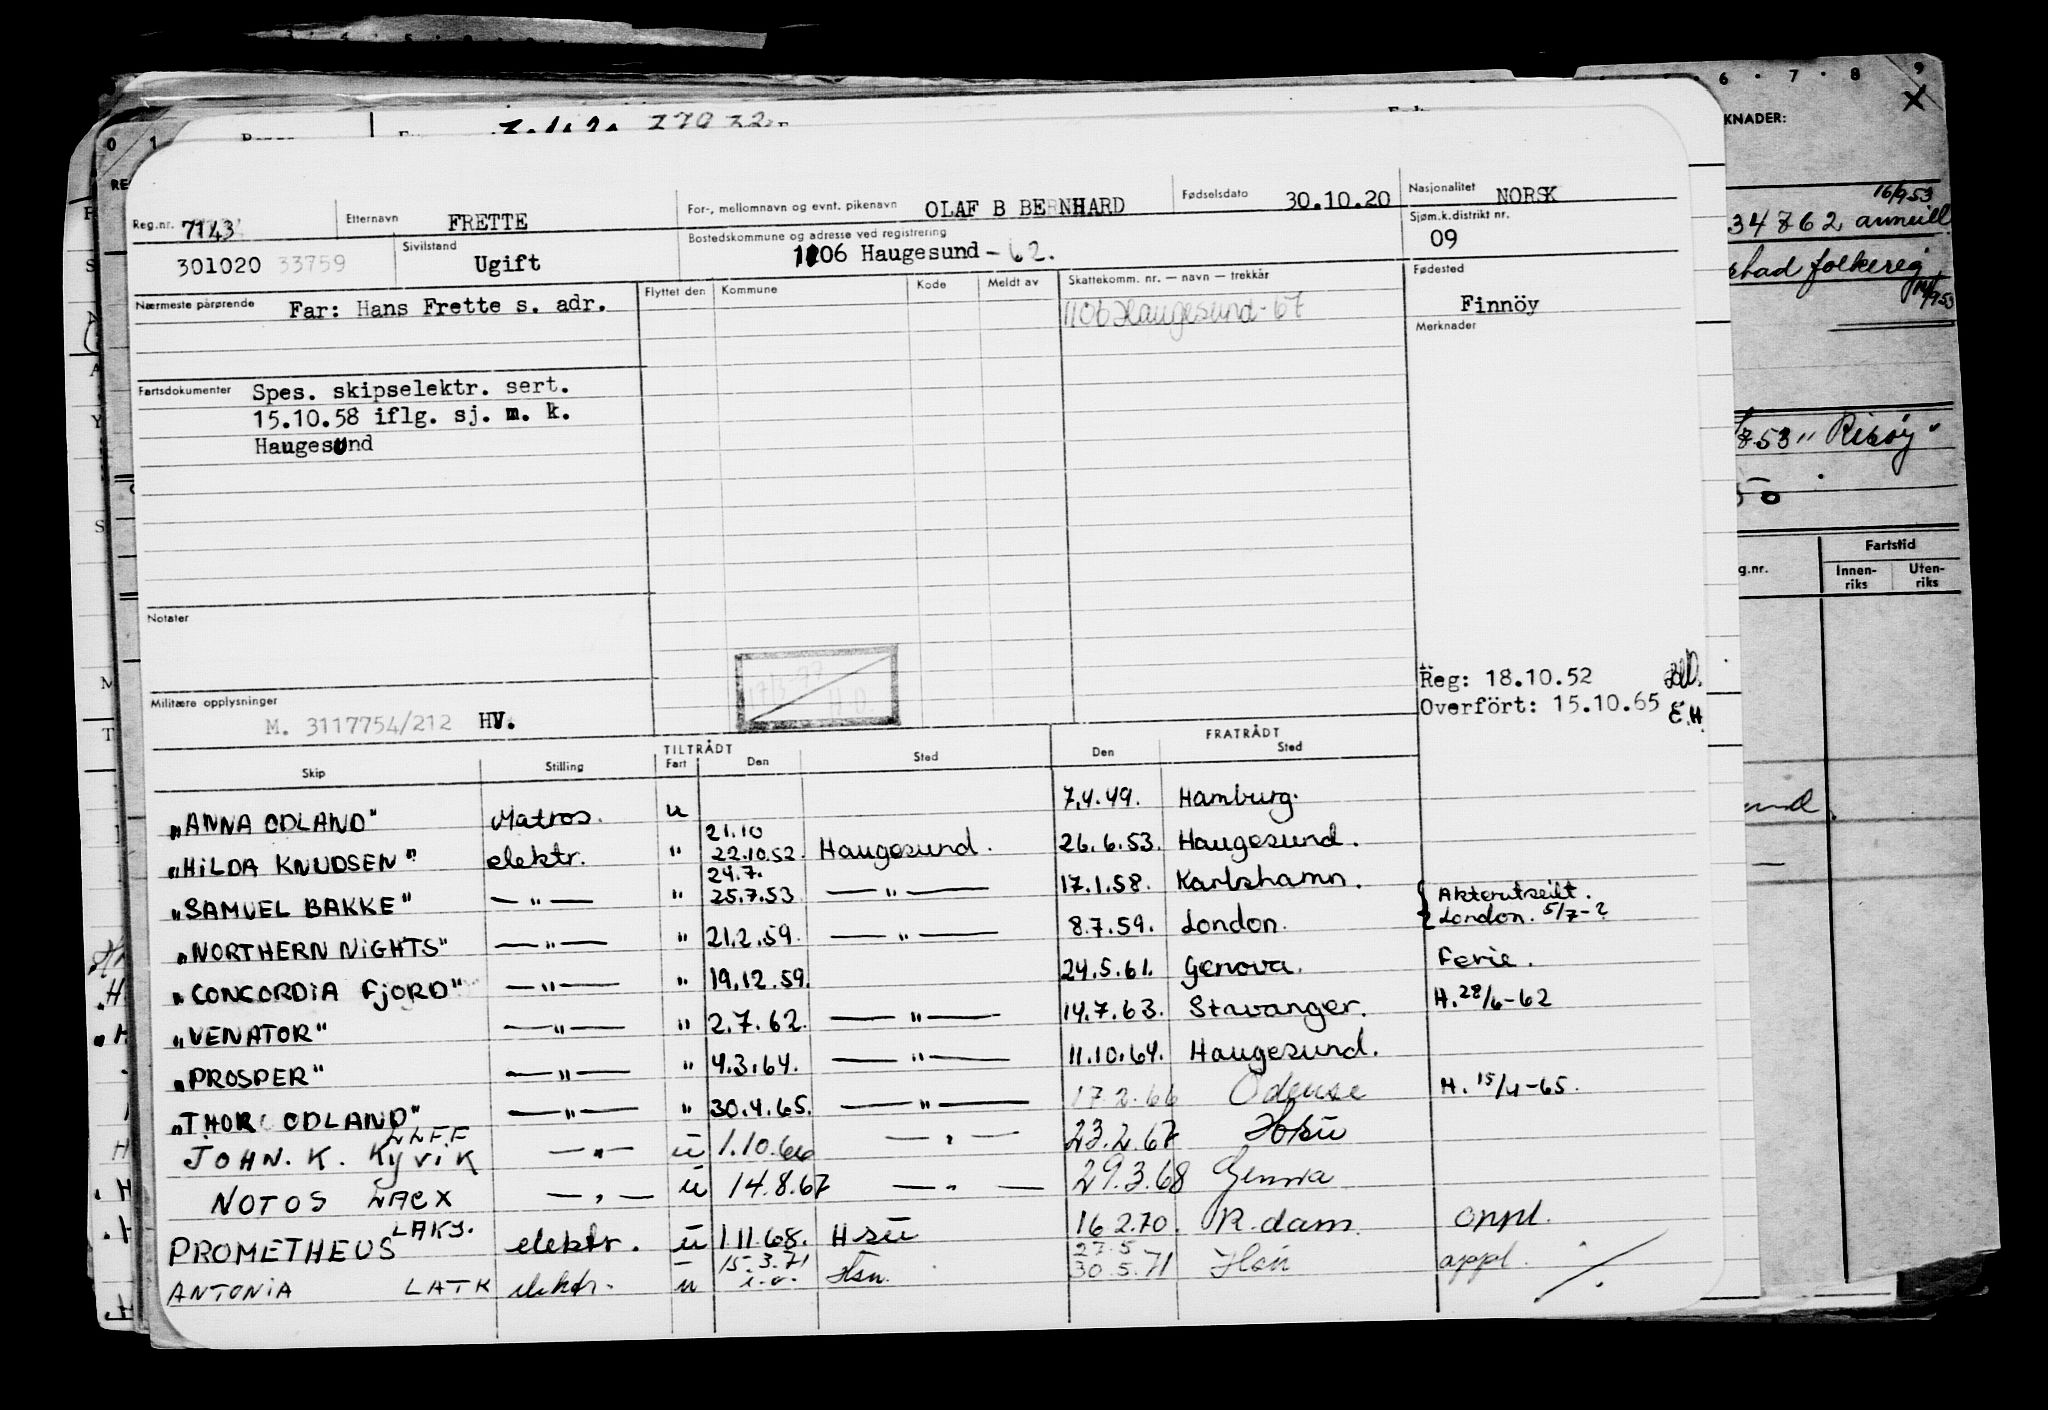 6 · 7 · 8 9
X
KNADER:
16/9 53
34762 annull
folkereg
853 " Risøy"
g.nr.
Fartstid
Innen-riks
Uten-riks
Reg.nr. 7143
Etternavn FRETTE
For-, mellomnavn og evnt. pikenavn OLAF B BERNHARD
Fødselsdato 30.10.20
Nasjonalitet NORSK
301020 33759
Sivilstand Ugift
Bostedskommune og adresse ved registrering
1106 Haugesund -62.
Sjøm.k.distrikt nr.
09
Nærmeste pårørende Far: Hans Frette s. adr.
Flyttet den Kommune Kode Meldt av
Skattekomm. nr. — navn — trekkår
1106 Haugesund-67
Fødested
Finnöy
Merknader
Fartsdokumenter Spes. skipselektr. sert.
15.10.58 iflg. sj. m. k.
Haugesund
Notater
Militære opplysninger
M. 3117754/212 HV.
Reg: 18.10.52
Overfört: 15.10.65 E.H
TILTRÅDT FRATRÅDT
Skip Stilling Fart Den Sted Den Sted
"ANNA ODLAND" Matros. u 7.4.49. Hamburg.
21.10
"HILDA KNUDSEN" elektr. " 22.10.52. Haugesund. 26.6.53. Haugesund.
24.7.
"SAMUEL BAKKE" — " — " 25.7.53 — " — 17.1.58. Karlshamn.
"NORTHERN NIGHTS" — " — " 21.2.59. — " — 8.7.59. London. { Akterutseilt. London. 5/7-?
"CONCORDIA FJORD" — " — " 19.12.59. 24.5.61. Genova. Ferie.
"VENATOR" — " — " 2.7.62. — " — 14.7.63. Stavanger. H. 28/6-62
"PROSPER" — " — " 4.3.64. — " — 11.10.64. Haugesund.
"THOR ODLAND" — " — " 30.4.65. — " — 17.2.66 Odense H. 15/4-65.
LLFF
JOHN. K. KYVIK — " — u 1.10.66 — " — 23.2.67
NOTOS LACX — " — u 14.8.67 — " — 29.3.68 Genova
LAKJ.
PROMETHEUS elektr. u 1.11.68. Hsu 16 2.70. R.dam oppl.
15.3.71 27.5
ANTONIA LATK elektr. u Hsn. 30.5.71 Hsn oppl.